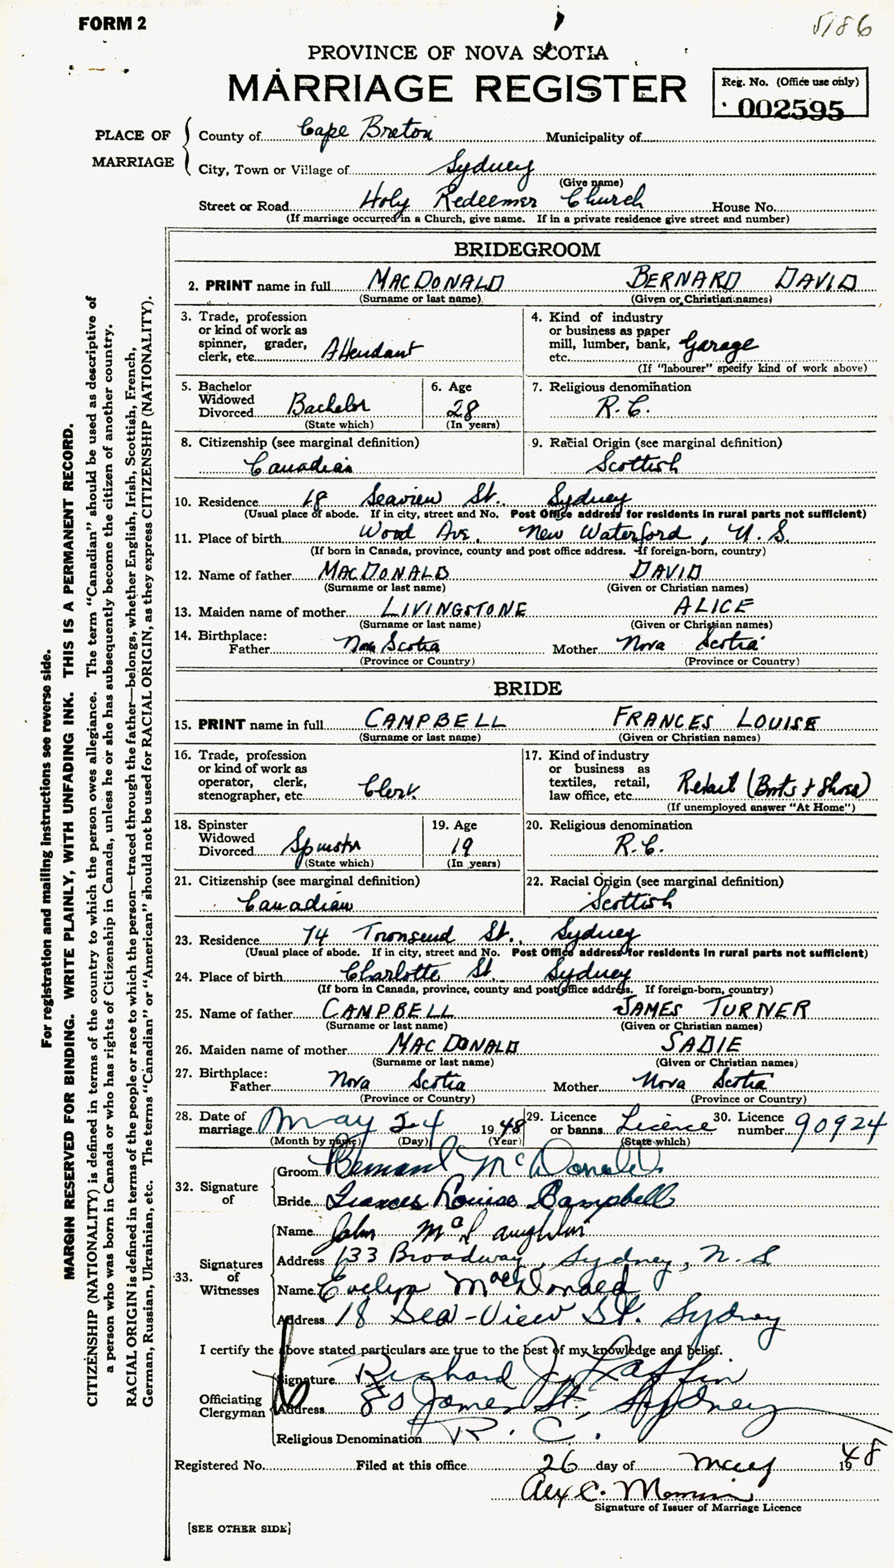 FORM 2
5186
PROVINCE OF NOVA SCOTIA
MARRIAGE REGISTER
Reg. No. (Office use only)
002595
PLACE OF MARRIAGE
County of Cape Breton Municipality of
City, Town or Village of Sydney
(Give name)
Street or Road Holy Redeemer Church House No.
(If marriage occurred in a Church, give name. If in a private residence give street and number)
For registration and mailing instructions see reverse side.
MARGIN RESERVED FOR BINDING. WRITE PLAINLY, WITH UNFADING INK. THIS IS A PERMANENT RECORD.
CITIZENSHIP (NATIONALITY) is defined in terms of the country to which the person owes allegiance. The term "Canadian" should be used as descriptive of
a person who was born in Canada or who has rights of Citizenship in Canada, unless he or she has subsequently become the citizen of another country.
RACIAL ORIGIN is defined in terms of the people or race to which the person—traced through the father—belongs, whether English, Irish, Scottish, French,
German, Russian, Ukrainian, etc. The terms "Canadian" or "American" should not be used for RACIAL ORIGIN, as they express CITIZENSHIP (NATIONALITY).
BRIDEGROOM
2. PRINT name in full MACDONALD BERNARD DAVID
(Surname or last name) (Given or Christian names)
3. Trade, profession
or kind of work as
spinner, grader,
clerk, etc. Attendant
4. Kind of industry
or business as paper
mill, lumber, bank,
etc. Garage
(If "labourer" specify kind of work above)
5. Bachelor
Widowed
Divorced Bachelor
(State which)
6. Age
28
(In years)
7. Religious denomination
R.C.
8. Citizenship (see marginal definition)
Canadian
9. Racial Origin (see marginal definition)
Scottish
10. Residence 18 Seaview St., Sydney
(Usual place of abode. If in city, street and No. Post Office address for residents in rural parts not sufficient)
11. Place of birth Wood Ave. New Waterford, N.S.
(If born in Canada, province, county and post office address. If foreign-born, country)
12. Name of father MACDONALD DAVID
(Surname or last name) (Given or Christian names)
13. Maiden name of mother LIVINGSTONE ALICE
(Surname or last name) (Given or Christian names)
14. Birthplace:
Father Nova Scotia Mother Nova Scotia
(Province or Country) (Province or Country)
BRIDE
15. PRINT name in full CAMPBELL FRANCES LOUISE
(Surname or last name) (Given or Christian names)
16. Trade, profession
or kind of work as
operator, clerk,
stenographer, etc. Clerk
17. Kind of industry
or business as
textiles, retail,
law office, etc. Retail (Boots & Shoes)
(If unemployed answer "At Home")
18. Spinster
Widowed
Divorced Spinster
(State which)
19. Age
19
(In years)
20. Religious denomination
R.C.
21. Citizenship (see marginal definition)
Canadian
22. Racial Origin (see marginal definition)
Scottish
23. Residence 74 Townsend St., Sydney
(Usual place of abode. If in city, street and No. Post Office address for residents in rural parts not sufficient)
24. Place of birth Charlotte St. Sydney
(If born in Canada, province, county and post office address. If foreign-born, country)
25. Name of father CAMPBELL JAMES TURNER
(Surname or last name) (Given or Christian names)
26. Maiden name of mother MACDONALD SADIE
(Surname or last name) (Given or Christian names)
27. Birthplace:
Father Nova Scotia Mother Nova Scotia
(Province or Country) (Province or Country)
28. Date of marriage May 24 1948
(Month by name) (Day) (Year)
29. Licence or banns Licence
(State which)
30. Licence number 90924
32. Signature of
Groom Bernard McDonald
Bride Frances Louise Campbell
33. Signatures of Witnesses
Name John McLaughlin
Address 133 Broadway, Sydney, N.S
Name Evelyn MacDonald
Address 18 Sea-View St. Sydney
I certify the above stated particulars are true to the best of my knowledge and belief.
Officiating Clergyman
Signature Richard J. Laffin
Address 80 James St., Sydney
Religious Denomination R.C.
Registered No. Filed at this office 26 day of May 1948
Alex C.
Signature of Issuer of Marriage Licence
[SEE OTHER SIDE]